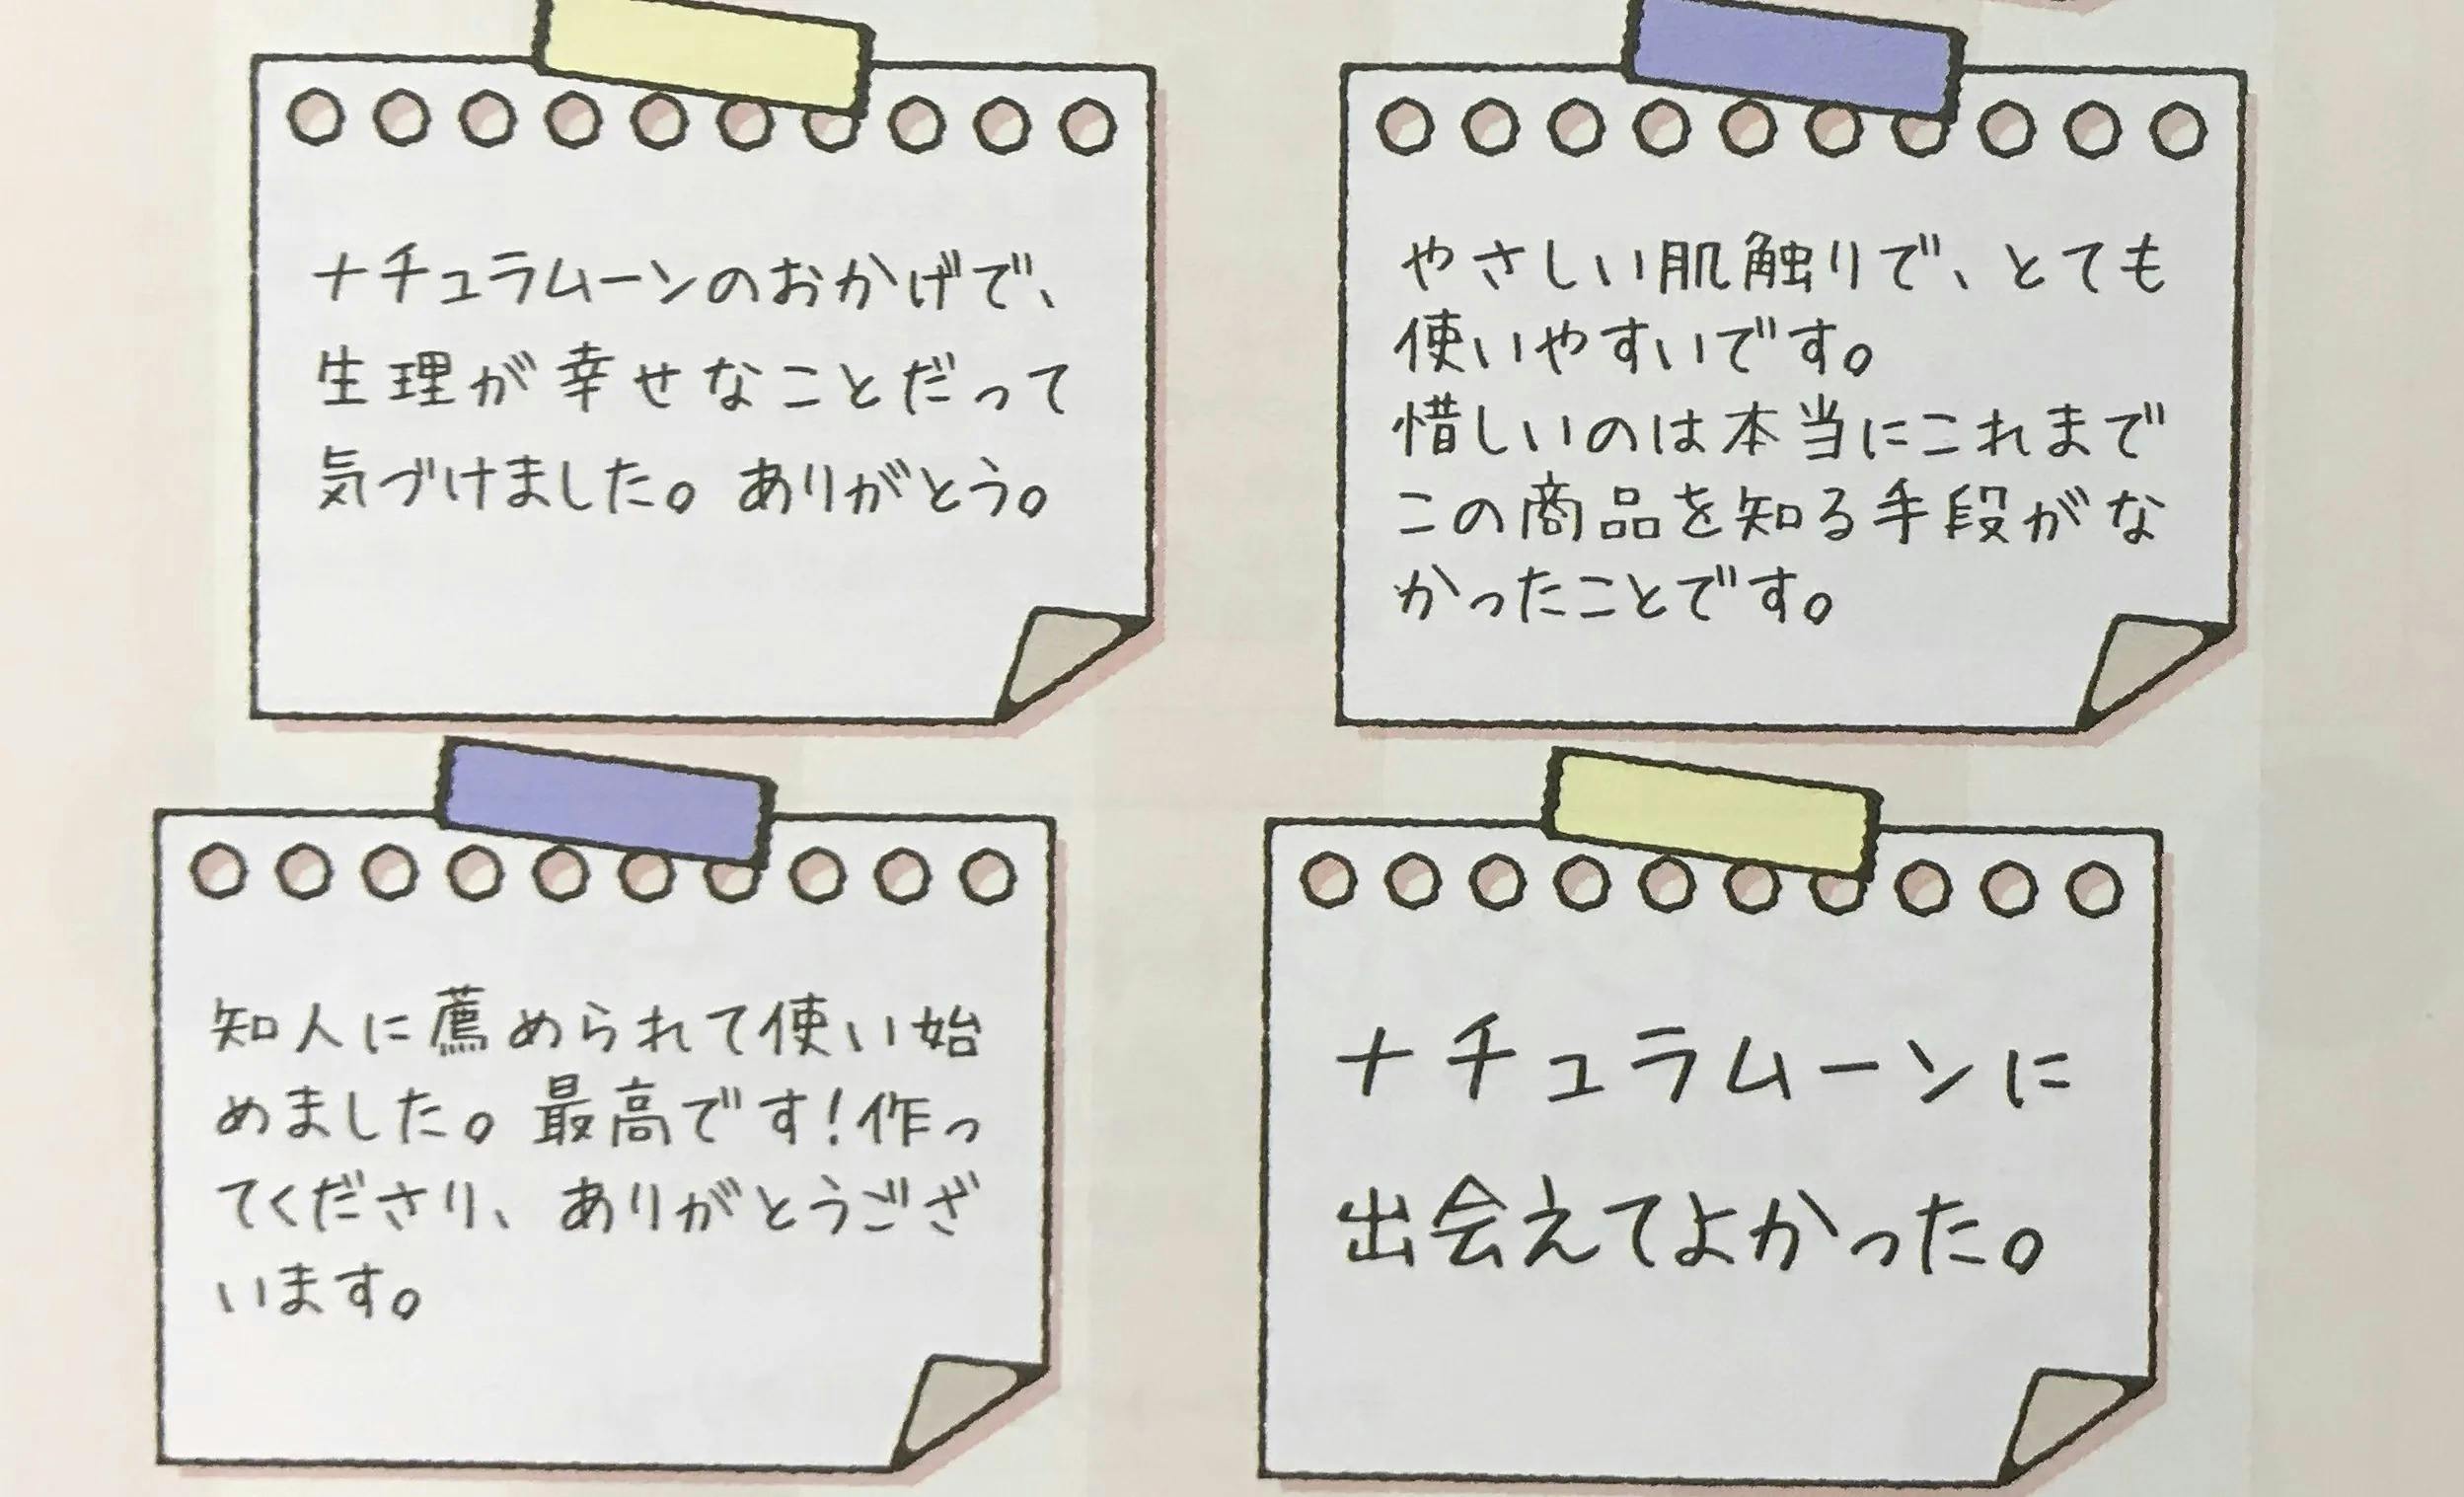 ナチュラムーンのおかげで、
生理が幸せなことだって
気づけました。ありがとう。
やさしい肌触りで、とても
使いやすいです。
惜しいのは本当にこれまで
この商品を知る手段がな
かったことです。
知人に薦められて使い始
めました。最高です!作っ
てくださり、ありがとうござ
います。
ナチュラムーンに
出会えてよかった。